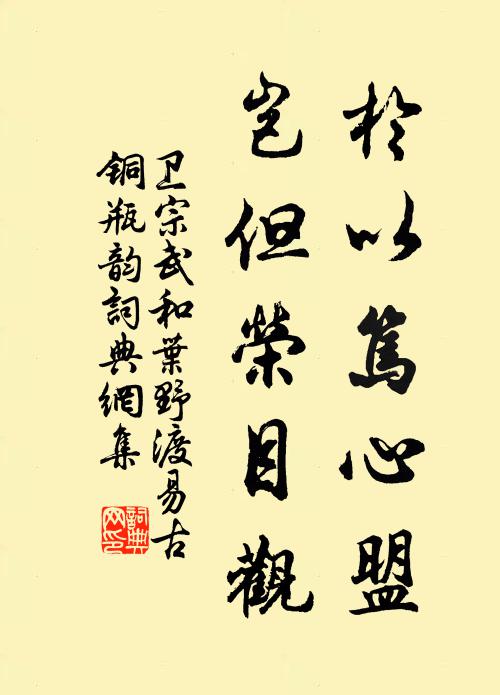 於以篤心盟
豈但榮目觀
卫宗武和葉野渡易古
銅瓶韵詞典網集
詞典网印